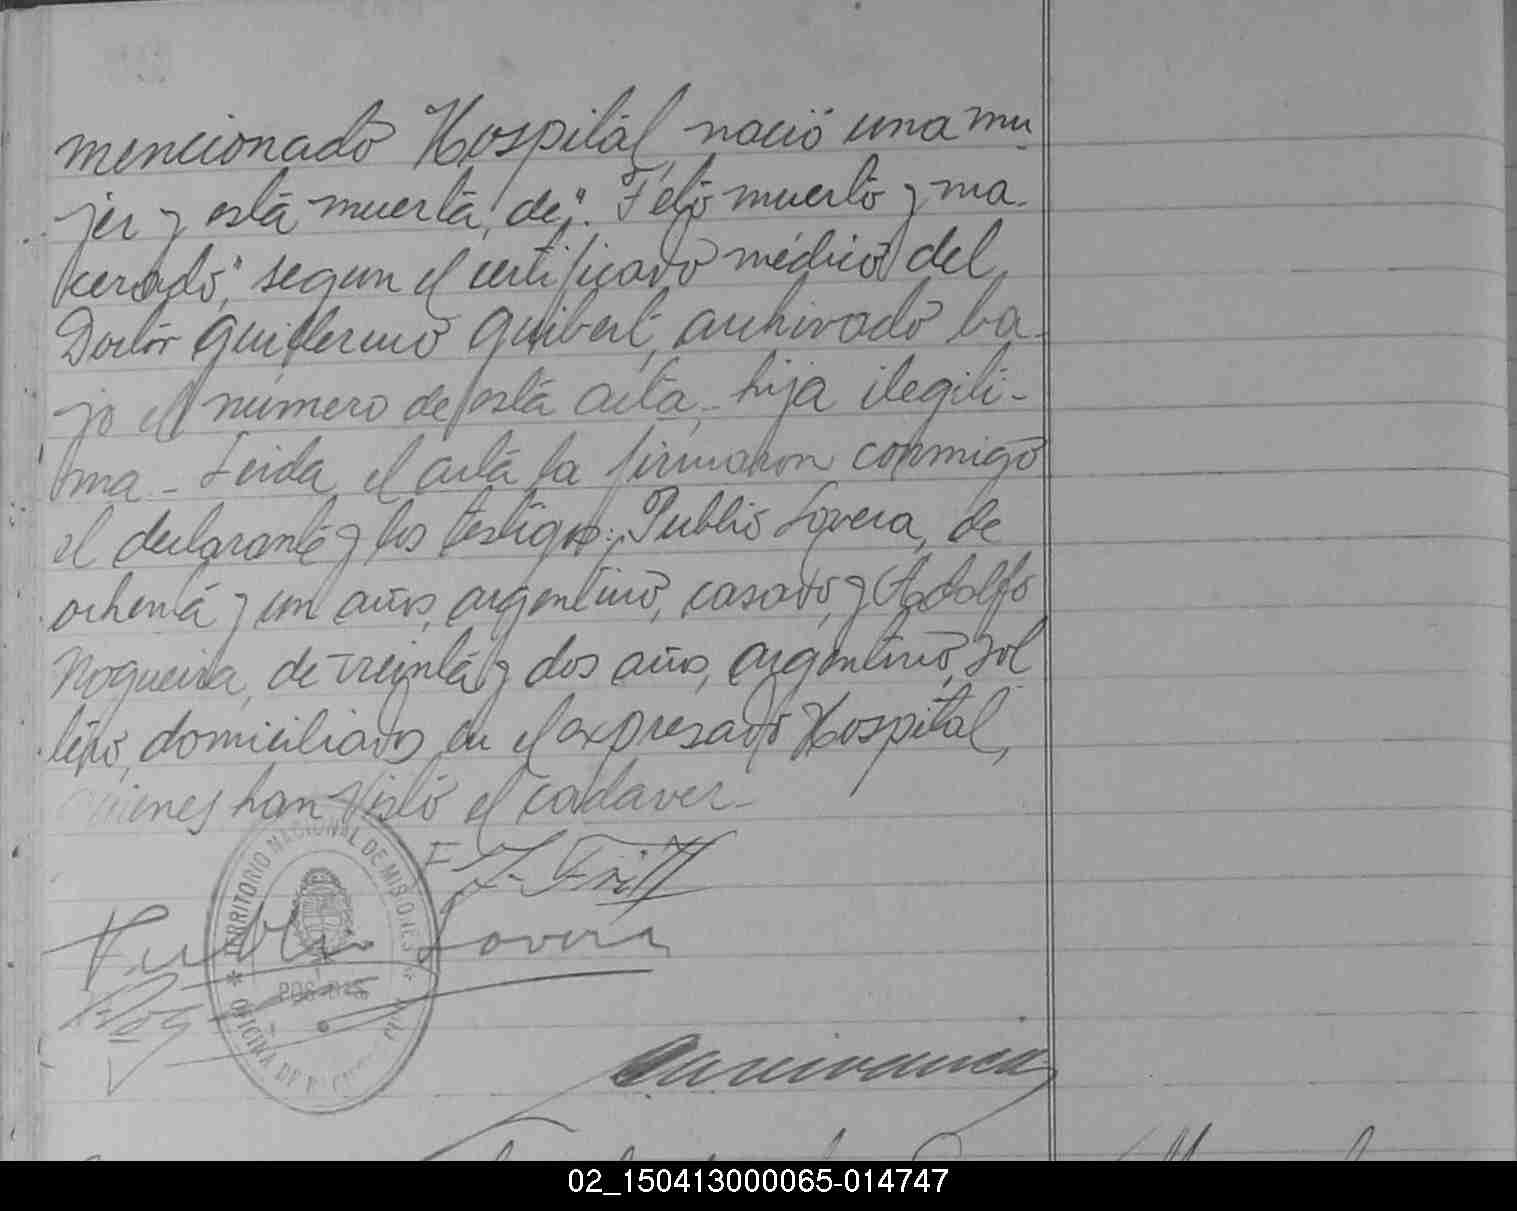 mencionado Hospital, nació una mu-
jer y está muerta, de: "Feto muerto y ma-
cerado", segun el certificado médico del
Doctor Guillermo Guibert, archivado ba-
jo el número de está acta, hija ilegiti-
ma - Leida el acta la firmaron conmigo
el declarante y los testigos: Publio Lovera, de
ochenta y un años, argentino, casado, y Adolfo
Nogueira, de treinta y dos años, argentino, sol
tero, domiciliados en el expresado Hospital,
quienes han visto el cadaver -
Publio Lovera
TERRITORIO NACIONAL DE MISIONES
POSADAS
OFICINA DE
02_150413000065-014747